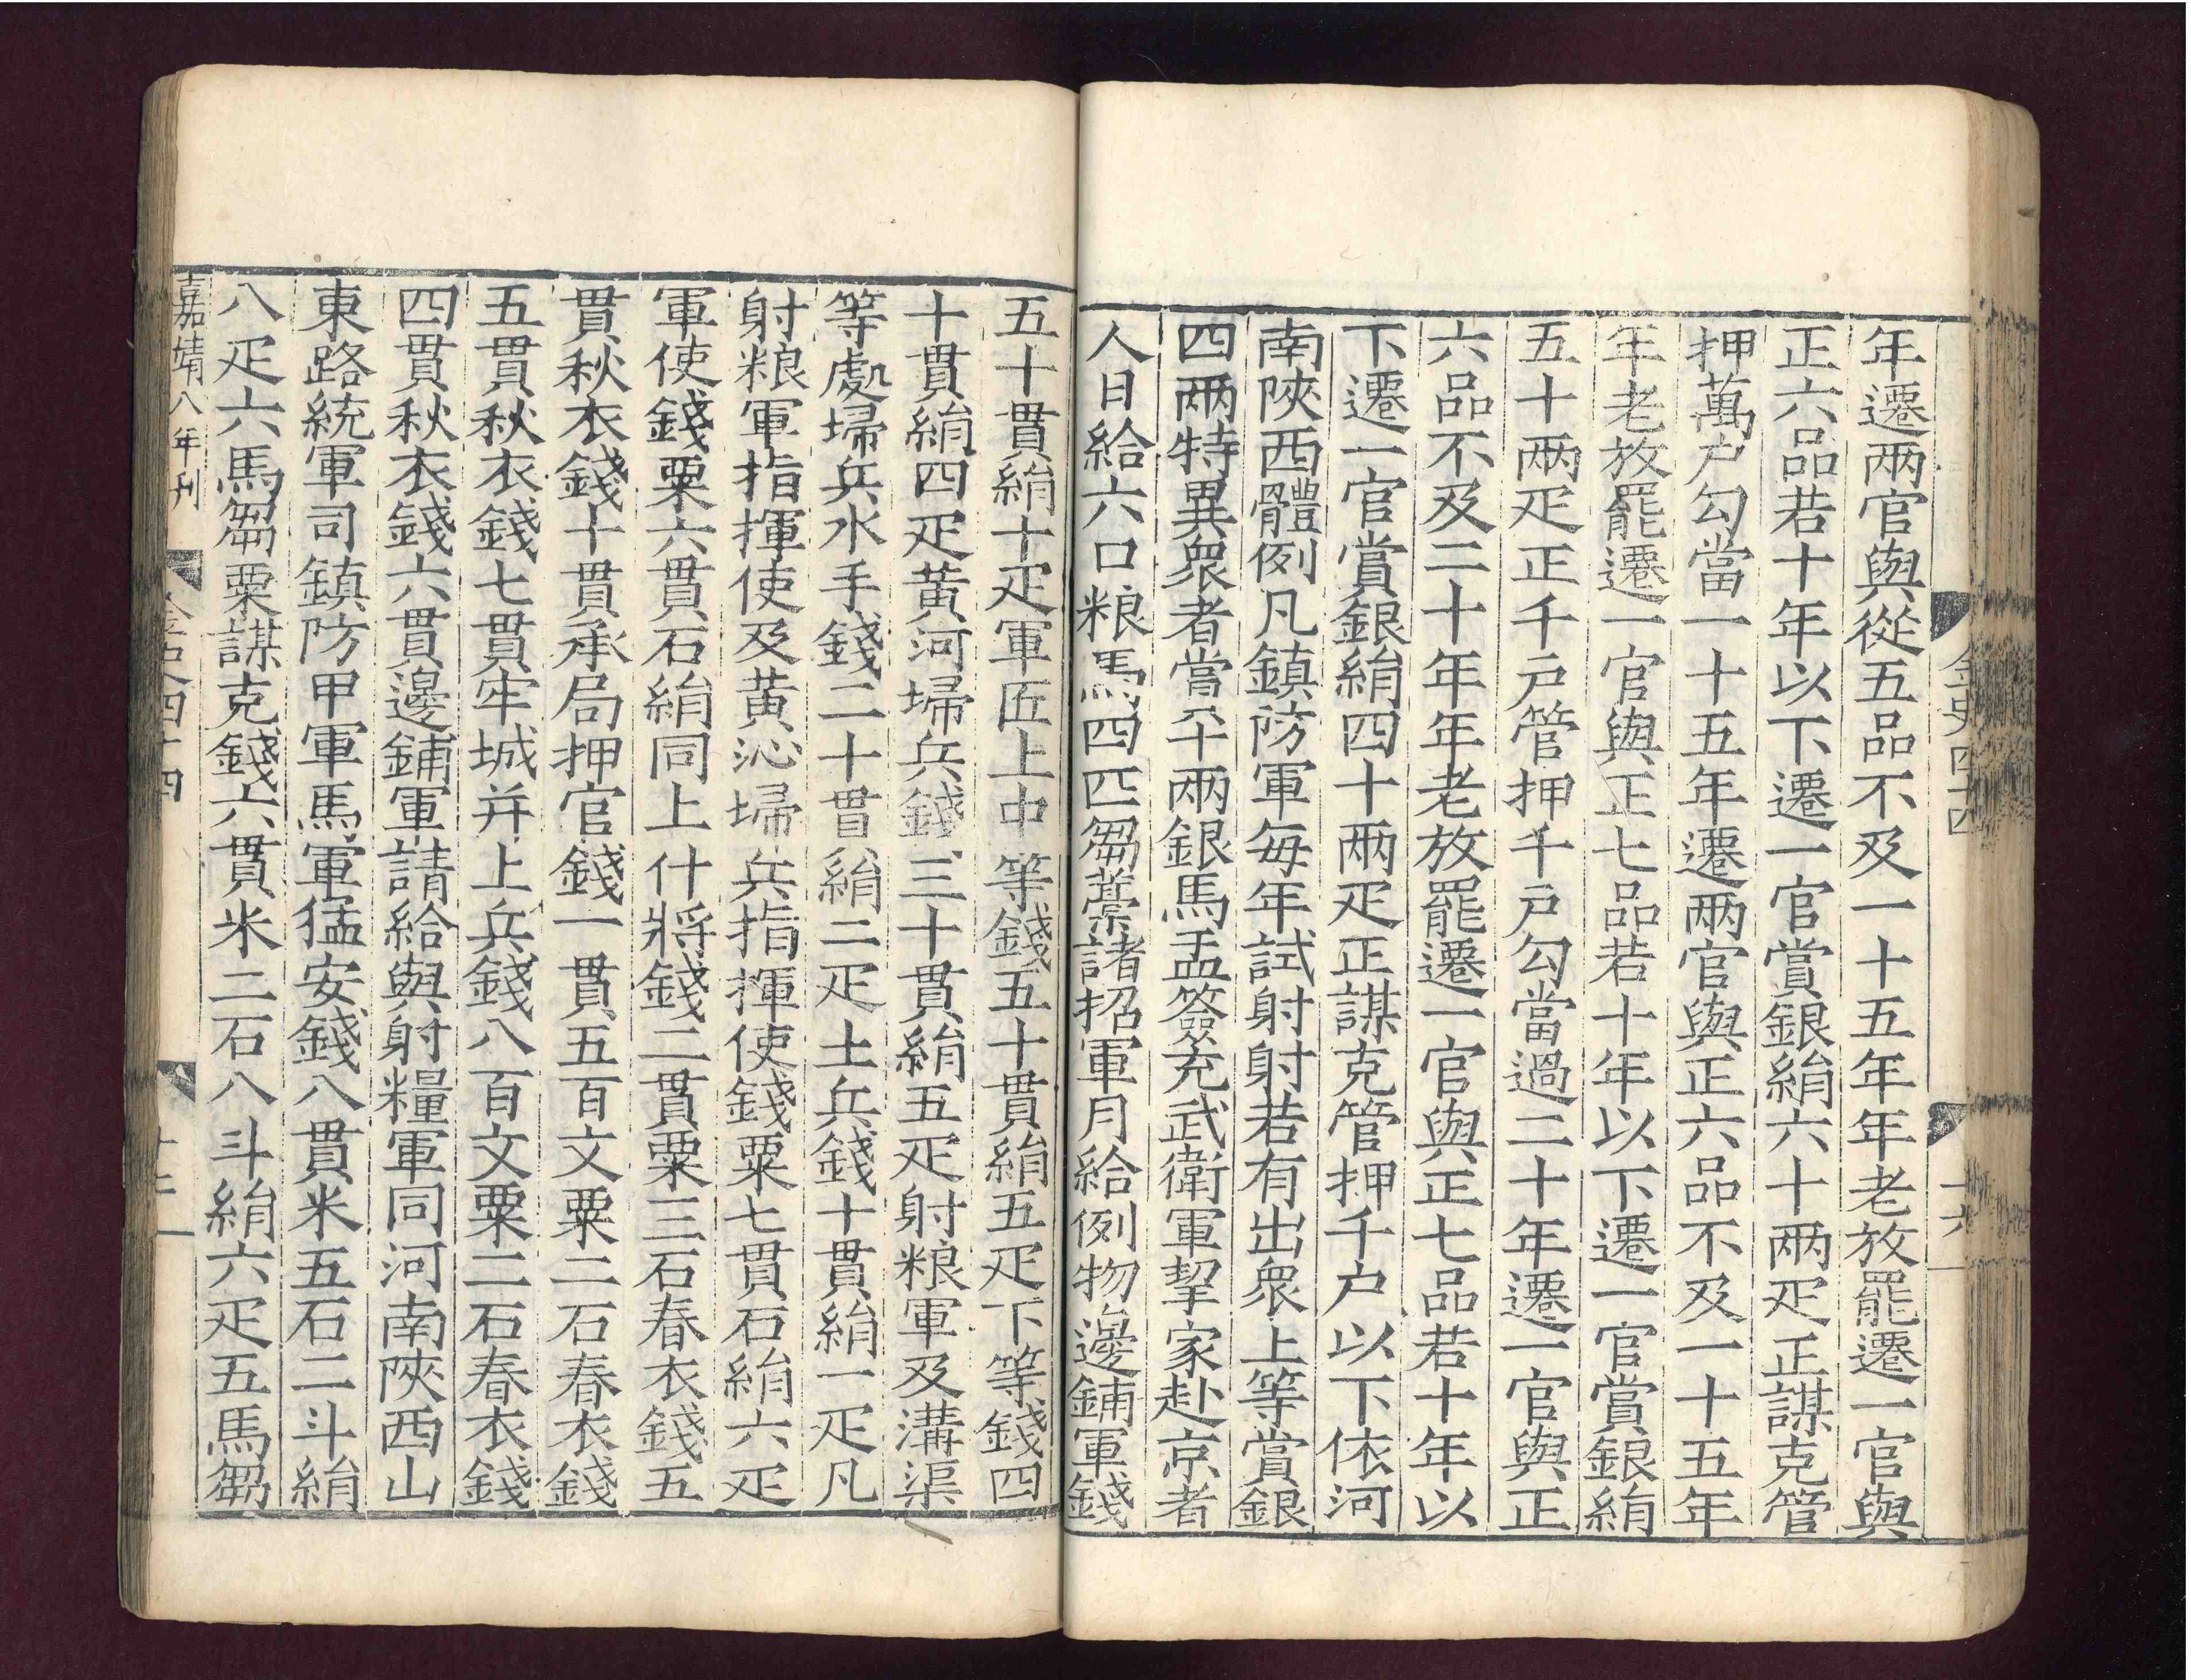 年遷兩官與從五品不及一十五年年老放罷遷一官與
正六品若十年以下遷一官賞銀絹六十兩疋正謀克管
押萬户勾當一十五年遷兩官與正六品不及一十五年
年老放罷遷一官與正七品若十年以下遷一官賞銀絹
五十兩疋正千戶管押千戶勾當過二十年遷一官與正
六品不及二十年年老放罷遷一官與正七品若十年以
下遷一官賞銀絹四十兩疋正謀克管押千户以下依河
南陝西體例凡鎮防軍每年試射射若有出衆上等賞銀
四兩特異衆者賞十兩銀馬盂簽充武衛軍挈家赴京者
人日給六口粮馬四匹芻藁諸招軍月給例物邊鋪軍錢
五十貫絹十疋軍匠上中等錢五十貫絹五疋下等錢四
十貫絹四疋黃河埽兵錢三十貫絹五疋射粮軍及溝渠
等處埽兵水手錢二十貫絹二疋土兵錢十貫絹一疋凡
射粮軍指揮使及黃沁埽兵指揮使錢粟七貫石絹六疋
軍使錢粟六貫石絹同上什將錢二貫粟三石春衣錢五
貫秋衣錢十貫承局押官錢一貫五百文粟二石春衣錢
五貫秋衣錢七貫牢城并上兵錢八百文粟二石春衣錢
四貫秋衣錢六貫邊鋪軍請給與射糧軍同河南陝西山
東路統軍司鎮防甲軍馬軍猛安錢八貫米五石二斗絹
八疋六馬芻粟謀克錢六貫米二石八斗絹六疋五馬芻
嘉靖八年刊
金史四十四